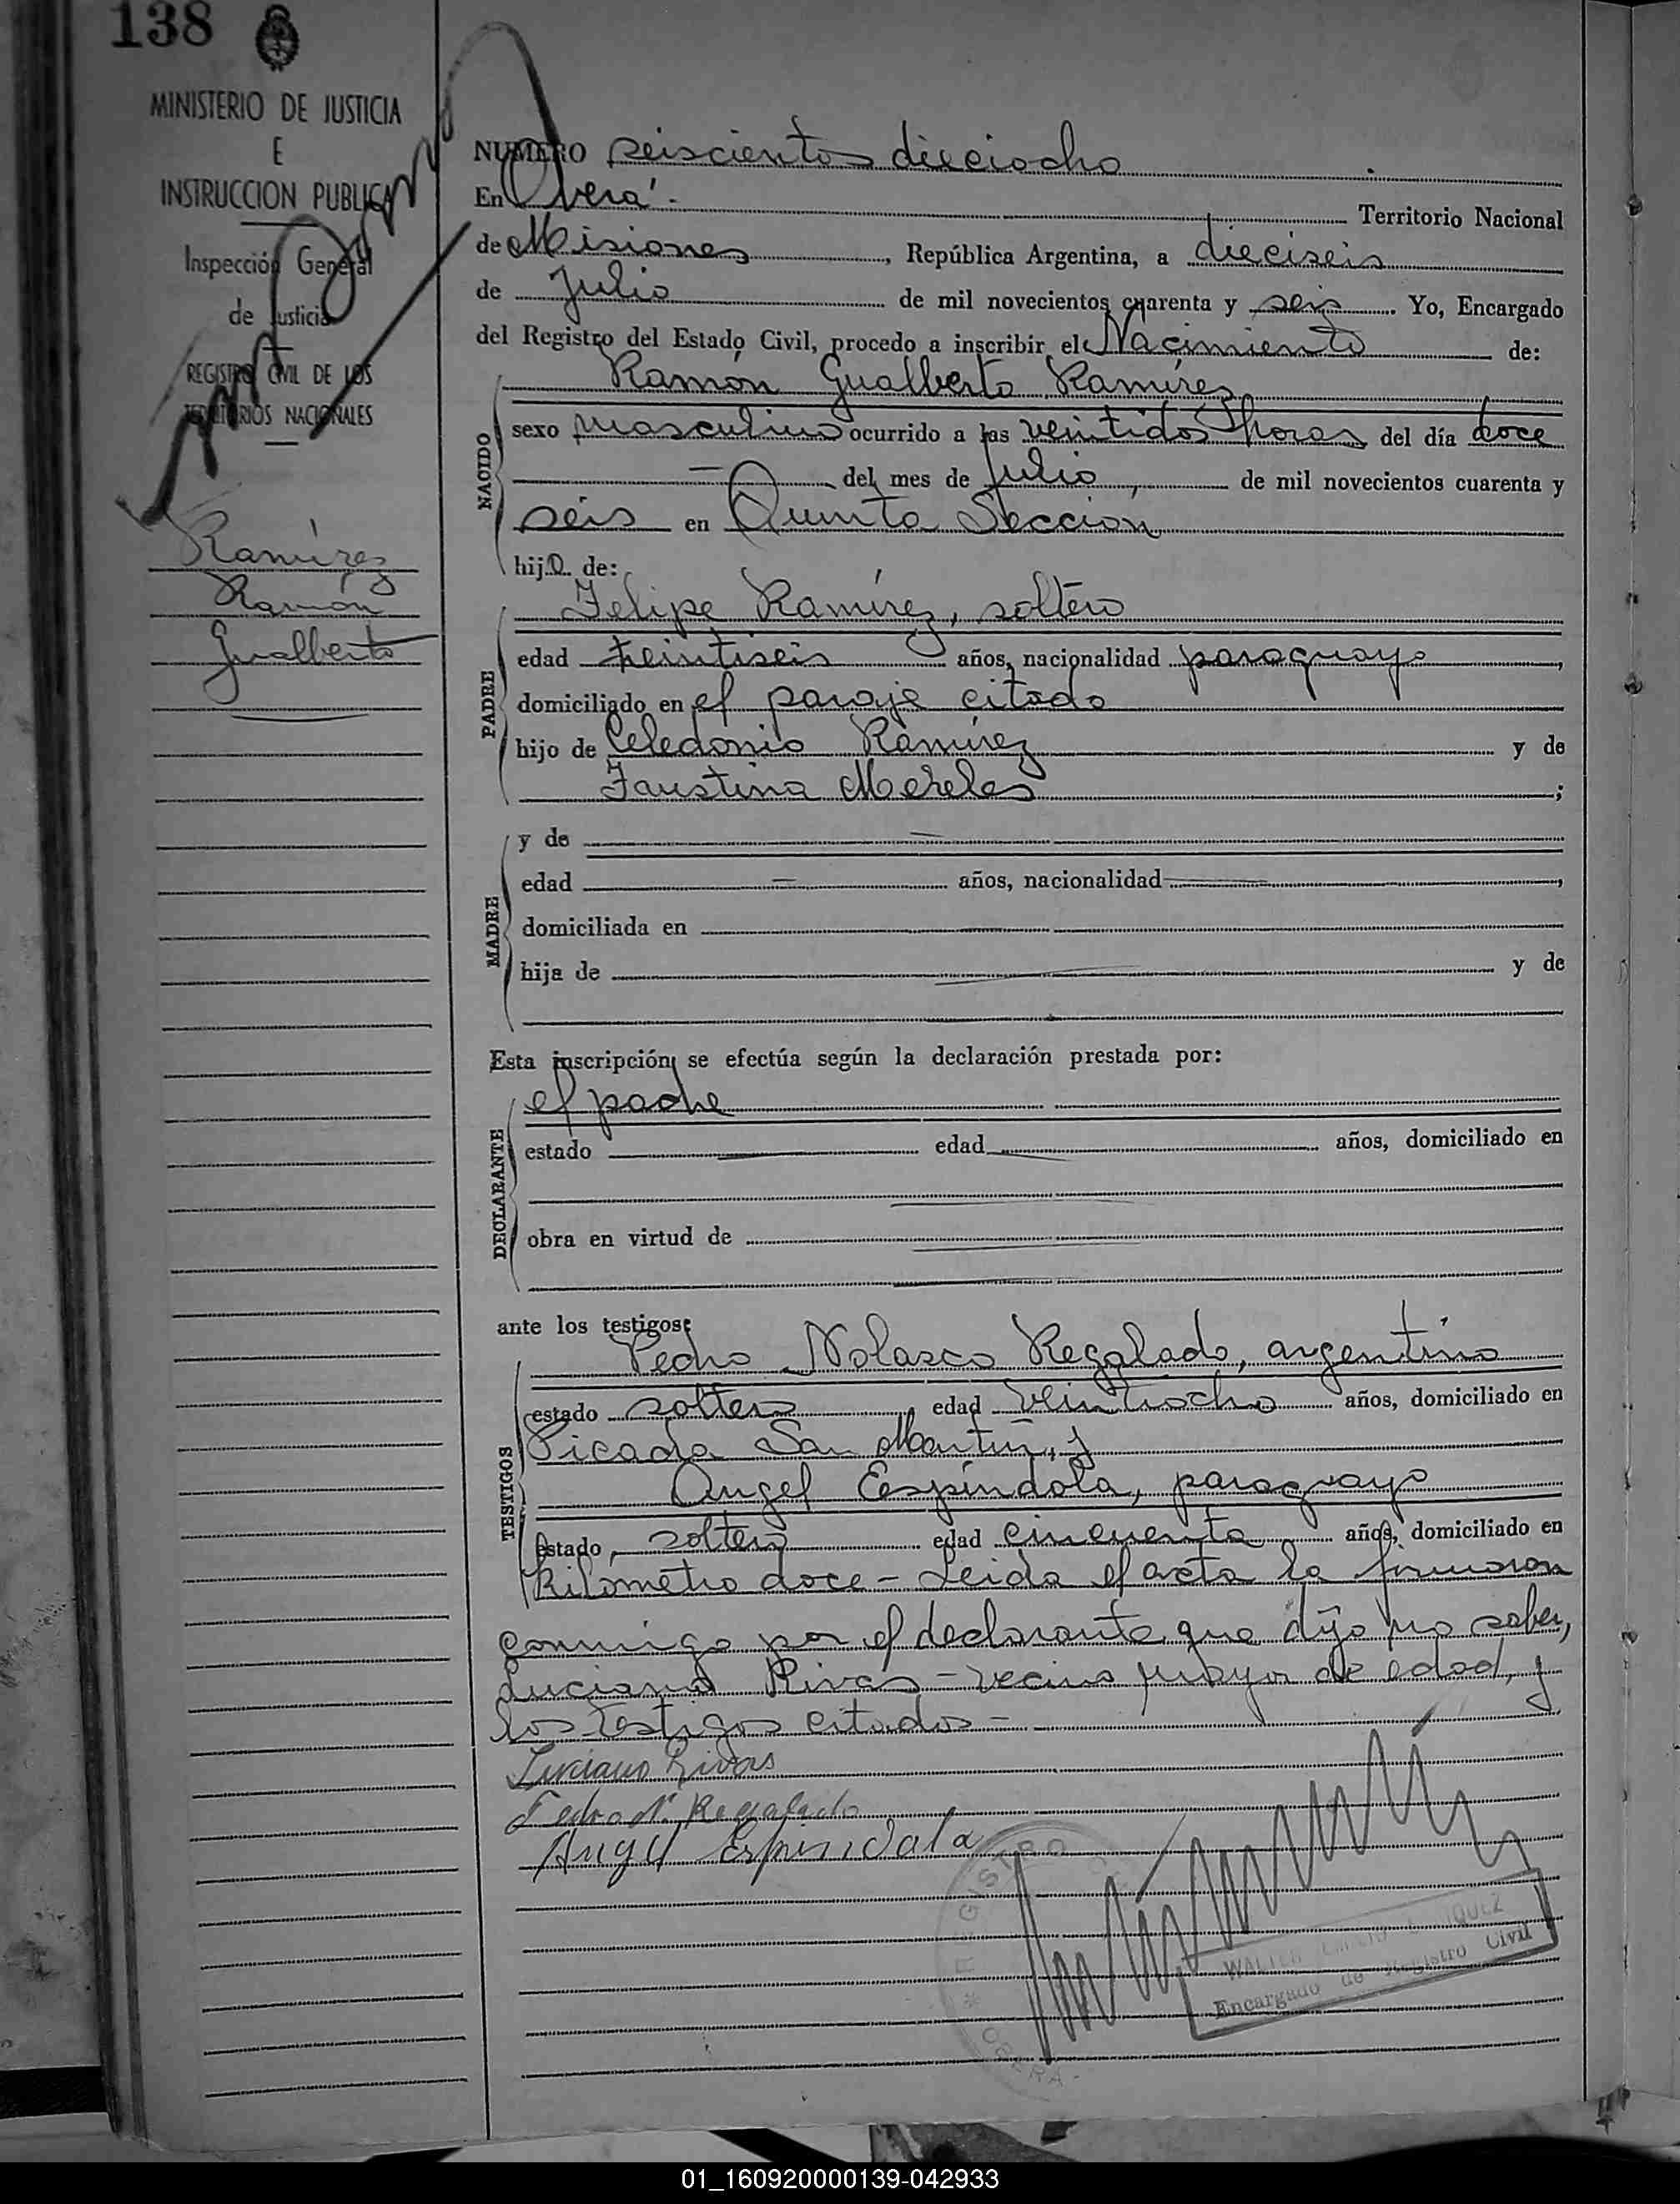 138
MINISTERIO DE JUSTICIA
E
INSTRUCCION PUBLICA
Inspección General
de Justicia
REGISTRO CIVIL DE LOS
TERRITORIOS NACIONALES
Ramírez
Ramón
Gualberto
NUMERO seiscientos dieciocho
En Oberá.- Territorio Nacional
de Misiones, República Argentina, a dieciseis
de Julio de mil novecientos cuarenta y seis Yo, Encargado
del Registro del Estado Civil, procedo a inscribir el Nacimiento de:
Ramón Gualberto Ramírez
NACIDO
sexo masculino ocurrido a las veintidos horas del día doce
— del mes de Julio, de mil novecientos cuarenta y
seis en Quinta Sección
hijo de:
PADRE
Felipe Ramírez, soltero
edad treintiseis años, nacionalidad paraguayo,
domiciliado en el paraje citado
hijo de Celedonio Ramírez y de
Faustina Mereles;
MADRE
y de —
edad — años, nacionalidad —,
domiciliada en —
hija de — y de
—
Esta inscripción se efectúa según la declaración prestada por:
DECLARANTE
el padre
estado — edad — años, domiciliado en
—
obra en virtud de —
—
ante los testigos:
TESTIGOS
Pedro Nolasco Regalado, argentino
estado soltero edad veintiocho años, domiciliado en
Picada San Martín, y
Angel Espíndola, paraguayo
estado, soltero edad cincuenta años, domiciliado en
Kilometro doce - Leida el acta la firmaron
conmigo por el declarante que dijo no saber,
Luciano Rivas - vecino mayor de edad, y
los testigos citados -
Luciano Rivas
Pedro N. Regalado
Angel Espindala
REGISTRO
OBERA
WALTER ENRIQUEZ
Encargado de Registro Civil
01_160920000139-042933